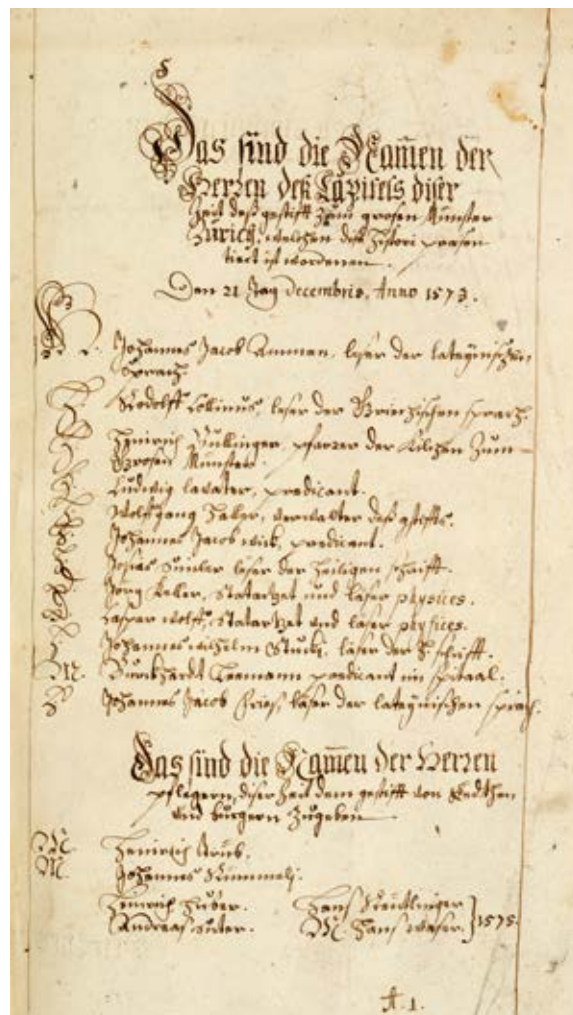 Das sind die Nam̅en der
Herren deß Capitels diser
Zeit deß gestifft zum grosen Münster
Zürich, welchen dise Histori praesen
tiert ist wordenen.
Den 21 Tag decembris. Anno 1573.
Johannes Jacob Amman, leser der lateynischen
sprach.
Rodolff Collinus, leser der Griechischen sprach.
Heinrich Bullinger, pfarrer der Kilchen Zum
Grosen Münster.
Ludwig lavater, predicant.
Wolfgang Haller, verwalter deß gstiffts.
Johannes Jacob wick, predicant.
Josias Simler leser der heiligen schrifft.
Jörg Keller, Statartzet und läser physices.
Caspar wolff, Statartzet und läser physices.
Johannes wilhelm Stucki, läser der H. schrifft.
M. Burckhardt Leemann predicant im spitaal.
Johannes Jacob Fries, läser der lateynischen sprach.
Das sind die Nam̅en der Herren
pflegern, diser Zeit dem gestifft von Redthen
und burgern Zugeben
M. Heinrich
M. Johannes Rümmeli.
Heinrich Huber. Hans Reütlinger
Andreas Suter. M. Hans waser. } 1575.
A. 1.